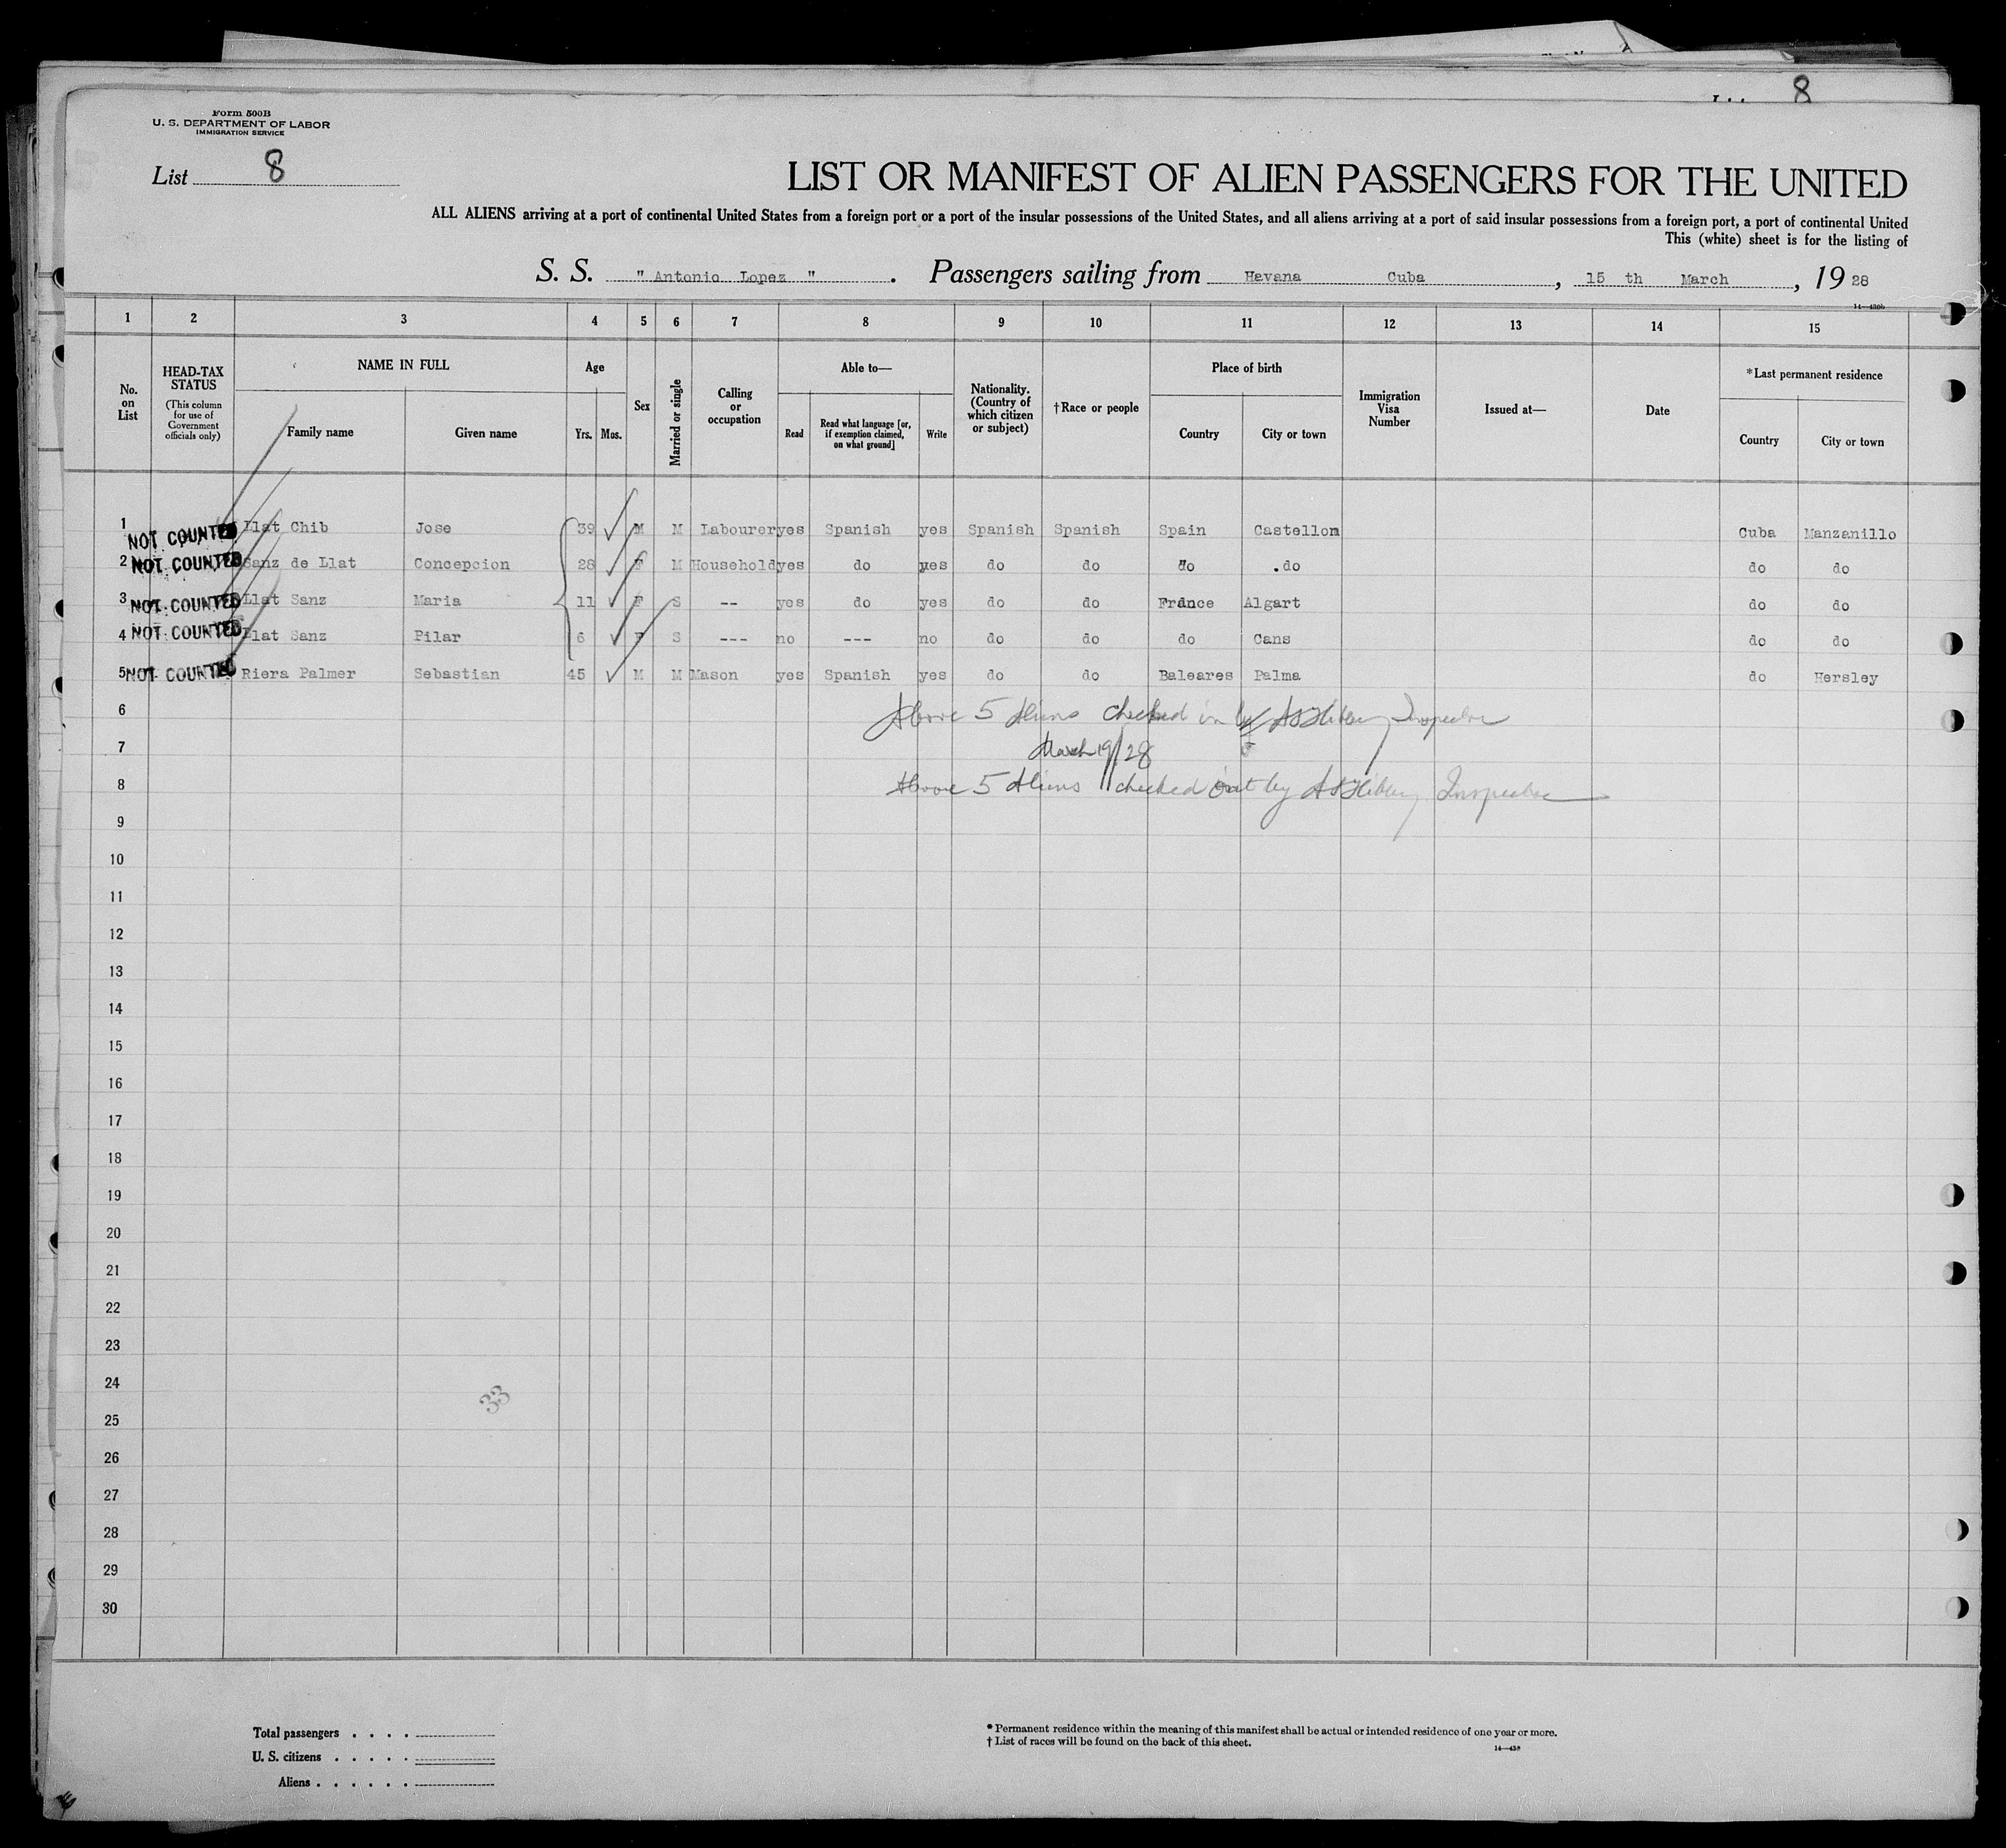 8
Form 500B
U. S. DEPARTMENT OF LABOR
IMMIGRATION SERVICE
List 8
LIST OR MANIFEST OF ALIEN PASSENGERS FOR THE UNITED
ALL ALIENS arriving at a port of continental United States from a foreign port or a port of the insular possessions of the United States, and all aliens arriving at a port of said insular possessions from a foreign port, a port of continental United
This (white) sheet is for the listing of
S. S. " Antonio Lopez " . Passengers sailing from Havana Cuba , 15 th March , 19 28
1 2 3 4 5 6 7 8 9 10 11 12 13 14 15
No. on List
HEAD-TAX STATUS
(This column for use of Government officials only)
NAME IN FULL
Family name Given name
Age
Yrs. Mos.
Sex
Married or single
Calling or occupation
Able to—
Read
Read what language [or, if exemption claimed, on what ground]
Write
Nationality. (Country of which citizen or subject)
†Race or people
Place of birth
Country City or town
Immigration Visa Number
Issued at—
Date
*Last permanent residence
Country City or town
1 NOT COUNTED Llat Chib Jose 39 M M Labourer yes Spanish yes Spanish Spanish Spain Castellon Cuba Manzanillo
2 NOT COUNTED Sanz de Llat Concepcion 28 F M Household yes do yes do do do do do do
3 NOT COUNTED Llat Sanz Maria 11 F S -- yes do yes do do France Algart do do
4 NOT COUNTED Llat Sanz Pilar 6 F S --- no --- no do do do Cans do do
5 NOT COUNTED Riera Palmer Sebastian 45 M M Mason yes Spanish yes do do Baleares Palma do Hersley
6 Above 5 Aliens checked in by Inspector
7 March 19/28
8 Above 5 Aliens checked out by Inspector
9
10
11
12
13
14
15
16
17
18
19
20
21
22
23
24
33
25
26
27
28
29
30
Total passengers . . . .
U. S. citizens . . . . .
Aliens . . . . . .
* Permanent residence within the meaning of this manifest shall be actual or intended residence of one year or more.
† List of races will be found on the back of this sheet.